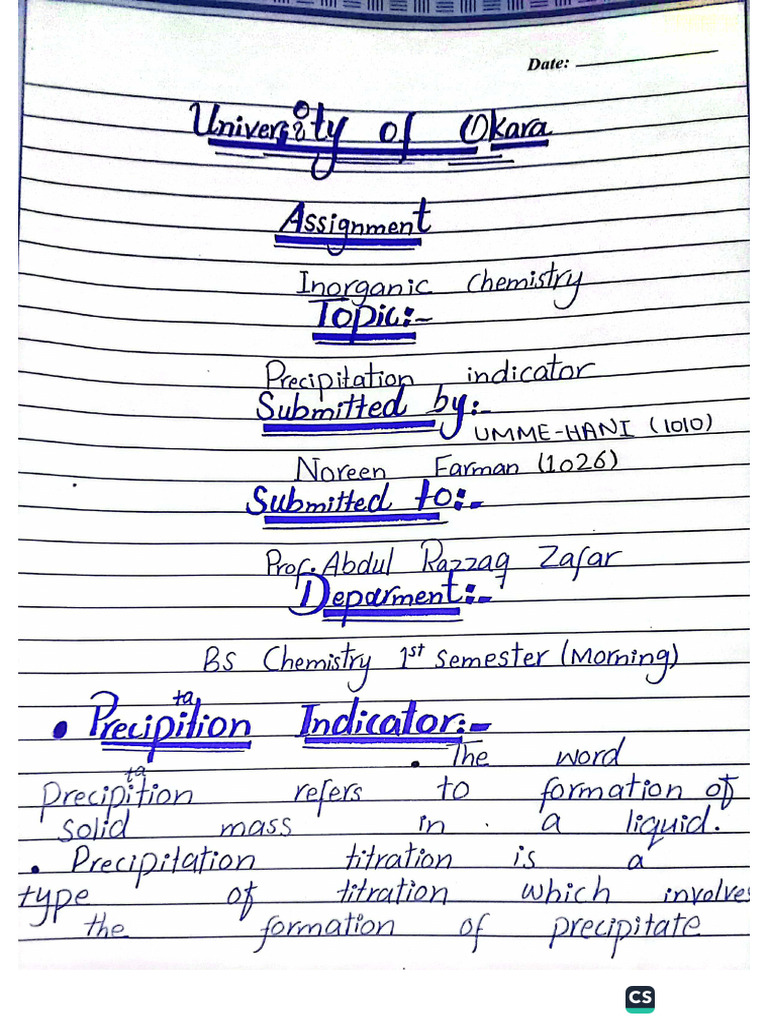 Date:
University of Okara
Assignment
Inorganic Chemistry
Topic:-
Precipitation indicator
Submitted by:-
UMME-HANI (1010)
Noreen Farman (1026)
Submitted to:-
Prof. Abdul Razzaq Zafar
Deparment:-
BS Chemistry 1st semester (Morning)
• Precipitation Indicator:-
• The word
Precipitation refers to formation of
solid mass in a liquid.
• Precipitation titration is a
type of titration which involves
the formation of precipitate
CS